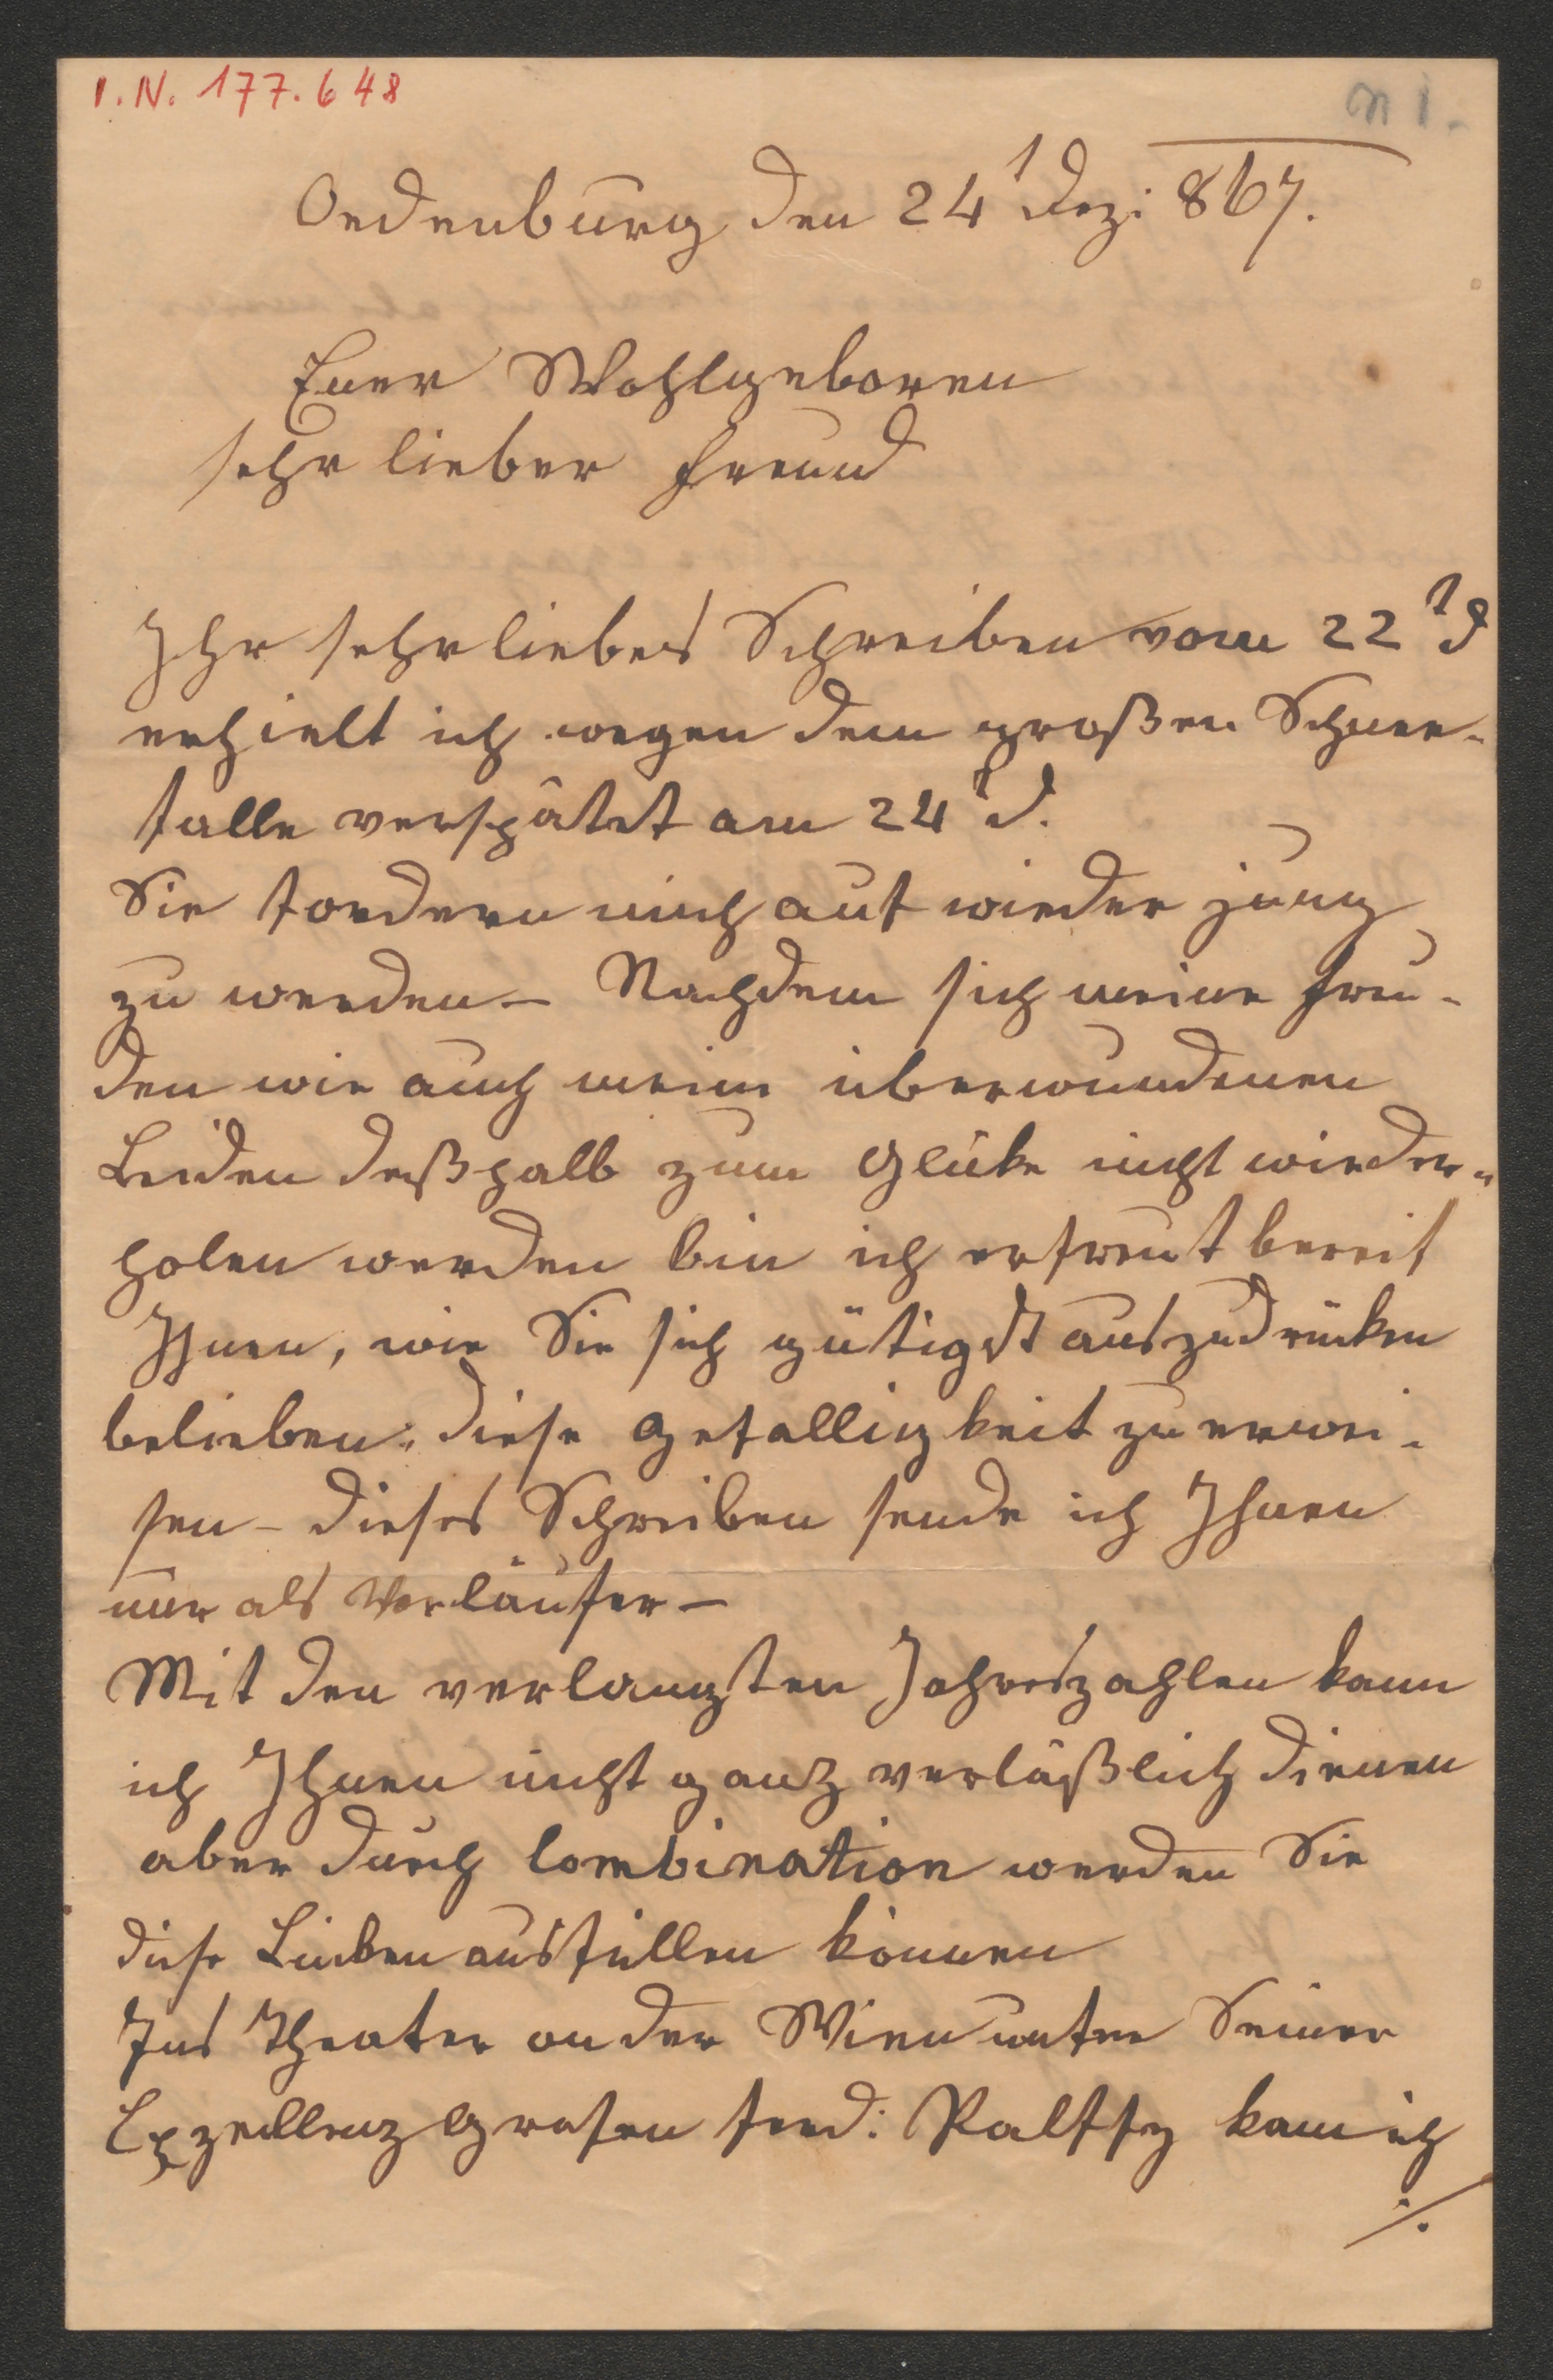 I. N. 177.648
N 1.
Oedenburg den 24t Dezi 867.
Euer Wohlgeboren
sehr lieber Freund
Ihr sehr liebes Schreiben vom 22t d
erhielt ich wegen dem großen Schnee-
falle verspätet am 24t d.
Sie fordern mich auf wieder jung
zu werden – Nachdem sich meine Freu-
den wie auch meine überwundenen
Leiden deßhalb zum Glüke nicht wieder-
holen werden bin ich erfreut bereit
Ihnen, wie Sie sich gütigst auszudrücken
belieben, diese Gefälligkeit zu erwei-
sen – Dieses Schreiben sende ich Ihnen
nur als Vorläufer –
Mit den verlangten Jahreszahlen kann
ich Ihnen nicht ganz verläßlich dienen
aber durch Combination werden Sie
diese Lücken ausfüllen können
Ins Theater an der Wien unter Seiner
Exzellenz Grafen Ferd: Palffy kam ich
./.